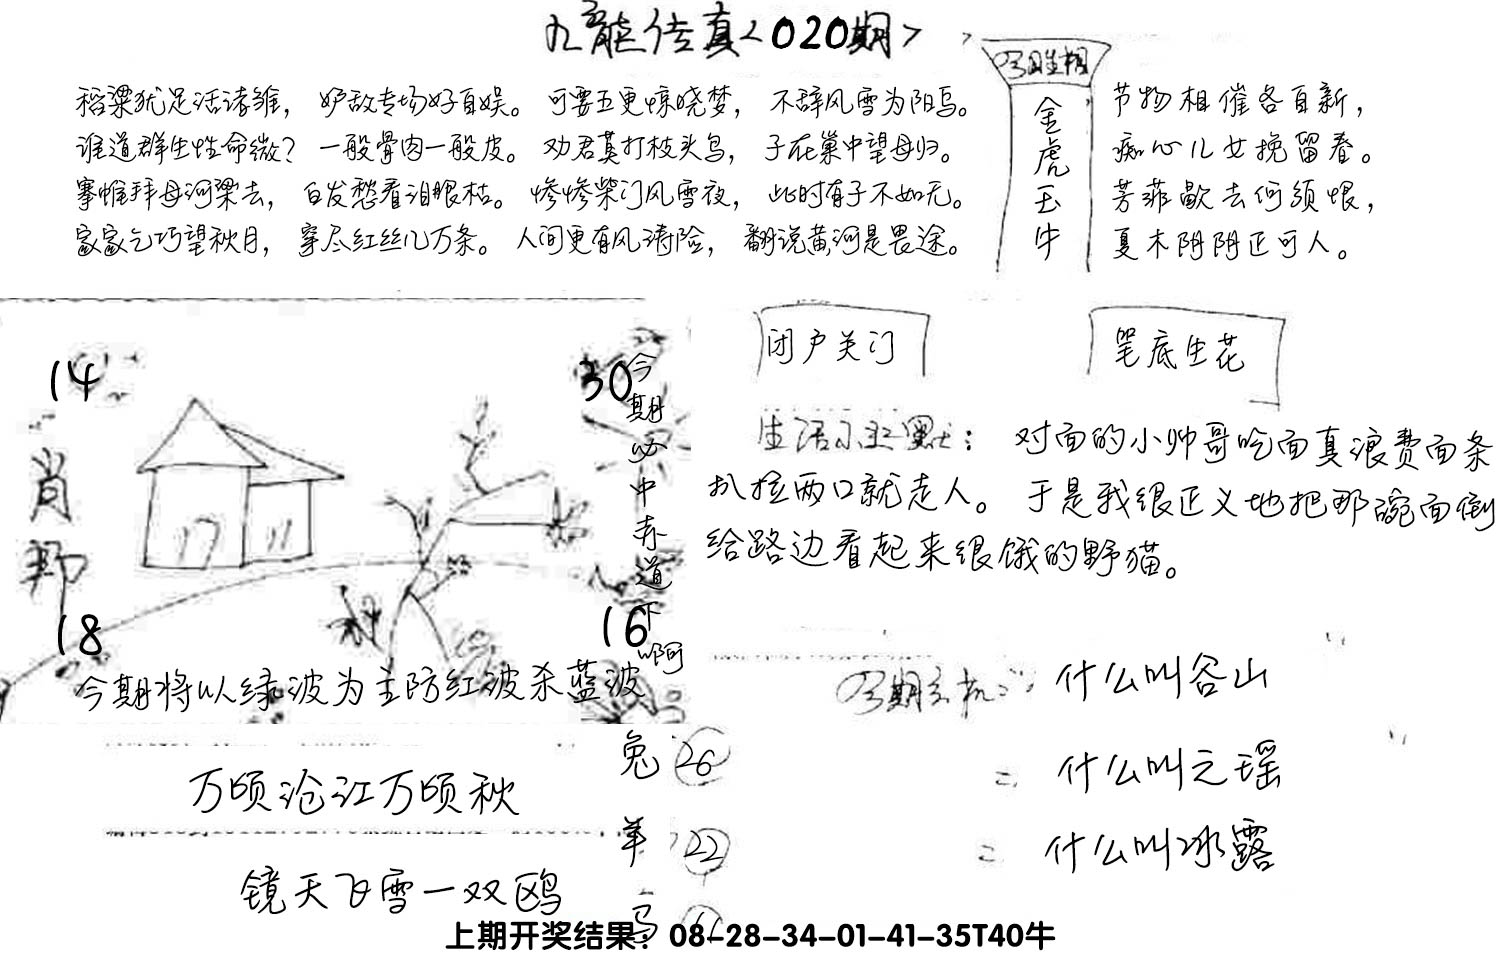 九龍传真<020期>
稻粱犹足活诸雏，妒敌专场好自娱。可要五更惊晓梦，不辞风雪为阳乌。
谁道群生性命微？一般骨肉一般皮。劝君莫打枝头鸟，子在巢中望母归。
搴帷拜母河梁去，白发愁看泪眼枯。惨惨柴门风雪夜，此时有子不如无。
家家乞巧望秋月，穿尽红丝几万条。人间更有风涛险，翻说黄河是畏途。
今期生相
金虎玉牛
节物相催各自新，
痴心儿女挽留春。
芳菲歇去何须恨，
夏木阴阴正可人。
14
30
肖邦
18
16
今期必中赤道下啊
今期将以绿波为主防红波杀蓝波
闭户关门
笔底生花
生活小幽默：对面的小帅哥吃面真浪费面条
扒拉两口就走人。于是我很正义地把那碗面倒
给路边看起来很饿的野猫。
今期玄机：什么叫谷山
二 什么叫元瑶
二 什么叫冰露
万顷沧江万顷秋
镜天飞雪一双鸥
兔 26
羊 22
上期开奖结果：08-28-34-01-41-35T40牛